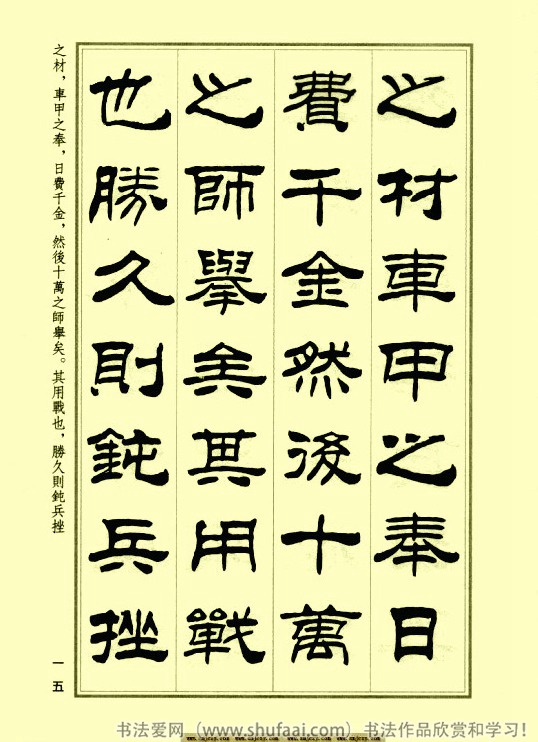 之材車甲之奉日
費千金然後十萬
之師舉矣其用戰
也勝久則鈍兵挫
之材，車甲之奉，日費千金，然後十萬之師舉矣。其用戰也，勝久則鈍兵挫
一五
书法爱网（www.shufaai.com）书法作品欣赏和学习！